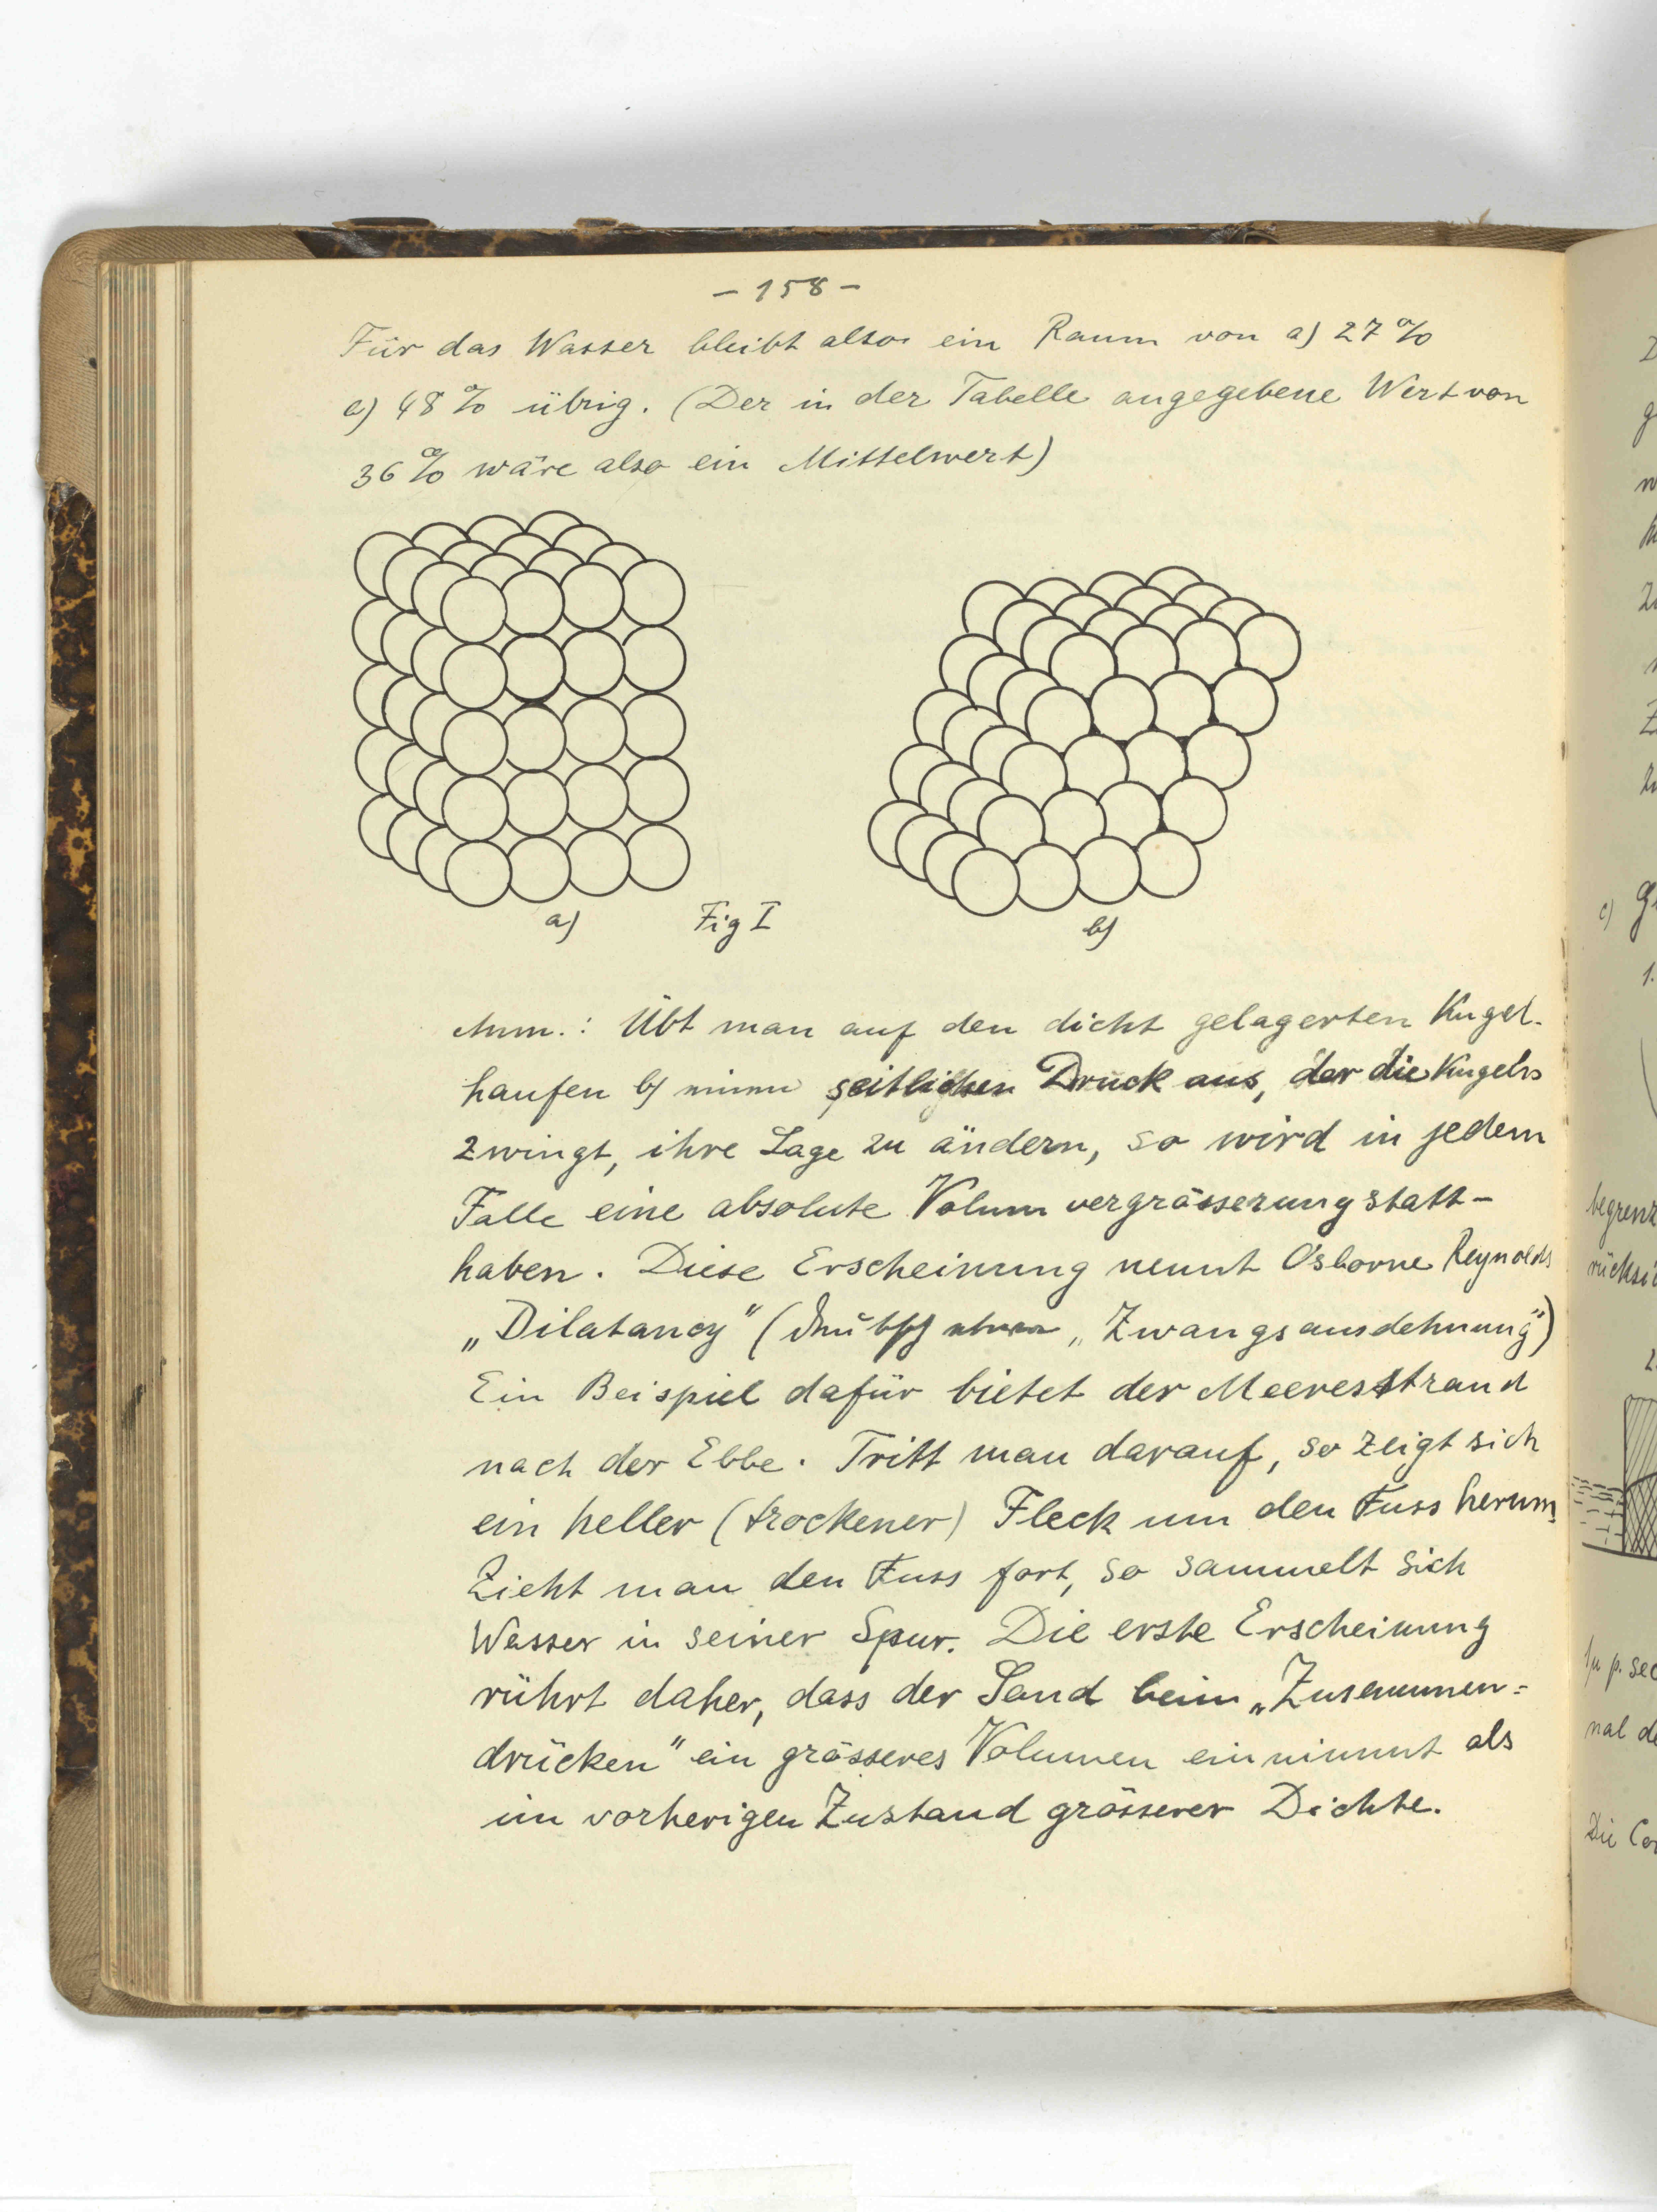 – 158 –
Für das Wasser bleibt also ein Raum von a) 27 %
e) 48 % übrig. (Der in der Tabelle angegebene Wert von
36 % wäre also ein Mittelwert)
a) Fig I b)
Anm.: Übt man auf den dicht gelagerten Kugel-
haufen b) seitlichen Druck aus, der die Kugeln
zwingt, ihre Lage zu ändern, so wird in jedem
Falle eine absolute Volum vergrösserung statt-
haben. Diese Erscheinung nennt Osborne Reynolds
„Dilatancy" ( „Zwangsausdehnung")
Ein Beispiel dafür bietet der Meeresstrand
nach der Ebbe. Tritt man darauf, so zeigt sich
ein heller (trockener) Fleck um den Fuss herum.
Zieht man den Fuss fort, so sammelt sich
Wasser in seiner Spur. Die erste Erscheinung
rührt daher, dass der Sand beim „Zusammen=
drücken" ein grösseres Volumen einnimmt als
im vorherigen Zustand grösserer Dichte.
c)
1.
begrenz
rücksi
2.
1μ p. sec
nal de
Die